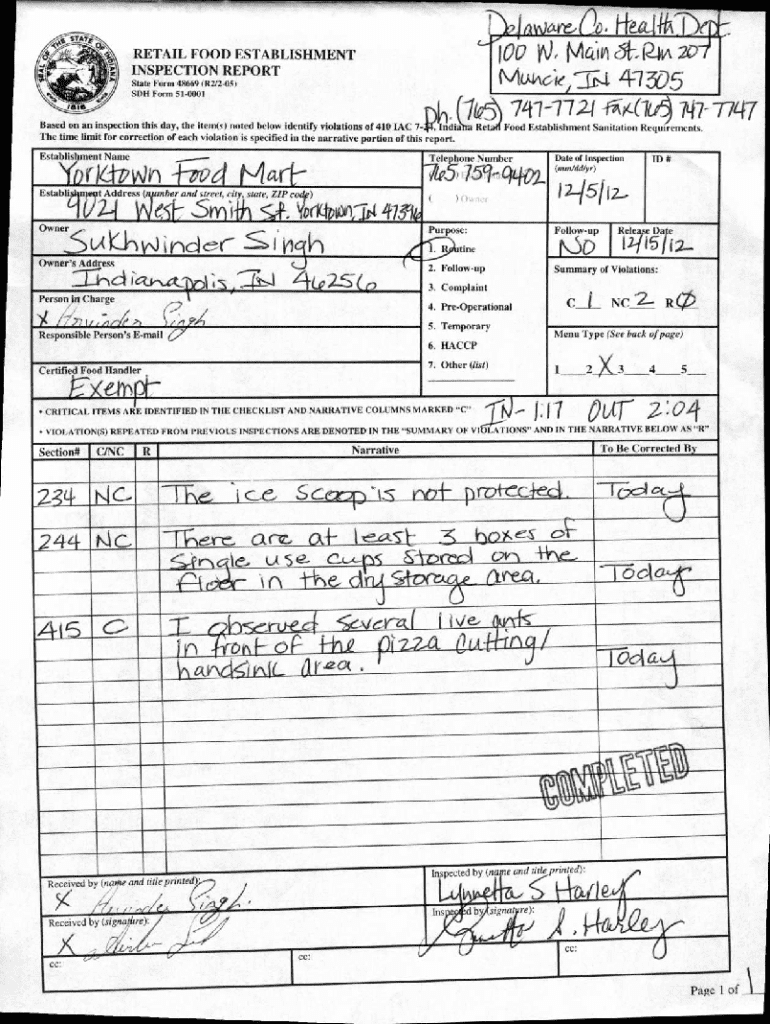 Delaware Co. Health Dept.
100 N. Main St. Rm 207
Muncie, IN 47305
Ph. (765) 747-7721 Fax (765) 747-7747
SEAL OF THE STATE OF INDIANA
1816
RETAIL FOOD ESTABLISHMENT
INSPECTION REPORT
State Form 48669 (R2/2-05)
SDH Form 51-0001
Based on an inspection this day, the item(s) noted below identify violations of 410 IAC 7-24, Indiana Retail Food Establishment Sanitation Requirements.
The time limit for correction of each violation is specified in the narrative portion of this report.
Establishment Name
Yorktown Food Mart
Telephone Number
765 759-9402
Date of Inspection
(mm/dd/yr)
12/5/12
ID #
Establishment Address (number and street, city, state, ZIP code)
9021 West Smith St. Yorktown, IN 47396
( ) Owner
Owner
Sukhwinder Singh
Purpose:
1. Routine
2. Follow-up
3. Complaint
4. Pre-Operational
5. Temporary
6. HACCP
7. Other (list)
Follow-up
NO
Release Date
12/15/12
Owner's Address
Indianapolis, IN 46256
Summary of Violations:
C 1 NC 2 R 0
Person in Charge
X Arvinder Singh
Responsible Person's E-mail
Menu Type (See back of page)
1 2 X 3 4 5
Certified Food Handler
Exempt
• CRITICAL ITEMS ARE IDENTIFIED IN THE CHECKLIST AND NARRATIVE COLUMNS MARKED "C"
IN- 1:17 OUT 2:04
• VIOLATION(S) REPEATED FROM PREVIOUS INSPECTIONS ARE DENOTED IN THE "SUMMARY OF VIOLATIONS" AND IN THE NARRATIVE BELOW AS "R"
Section# C/NC R Narrative To Be Corrected By
234 NC The ice scoop is not protected. Today
244 NC There are at least 3 boxes of
single use cups stored on the
floor in the dry storage area. Today
415 C I observed several live ants
in front of the pizza cutting/
handsink area. Today
COMPLETED
Received by (name and title printed):
X Arvinder Singh.
Inspected by (name and title printed):
Lynnetta S Harley
Received by (signature):
X
Inspected by (signature):
Lynnetta S. Harley
cc:
cc:
cc:
Page 1 of 1